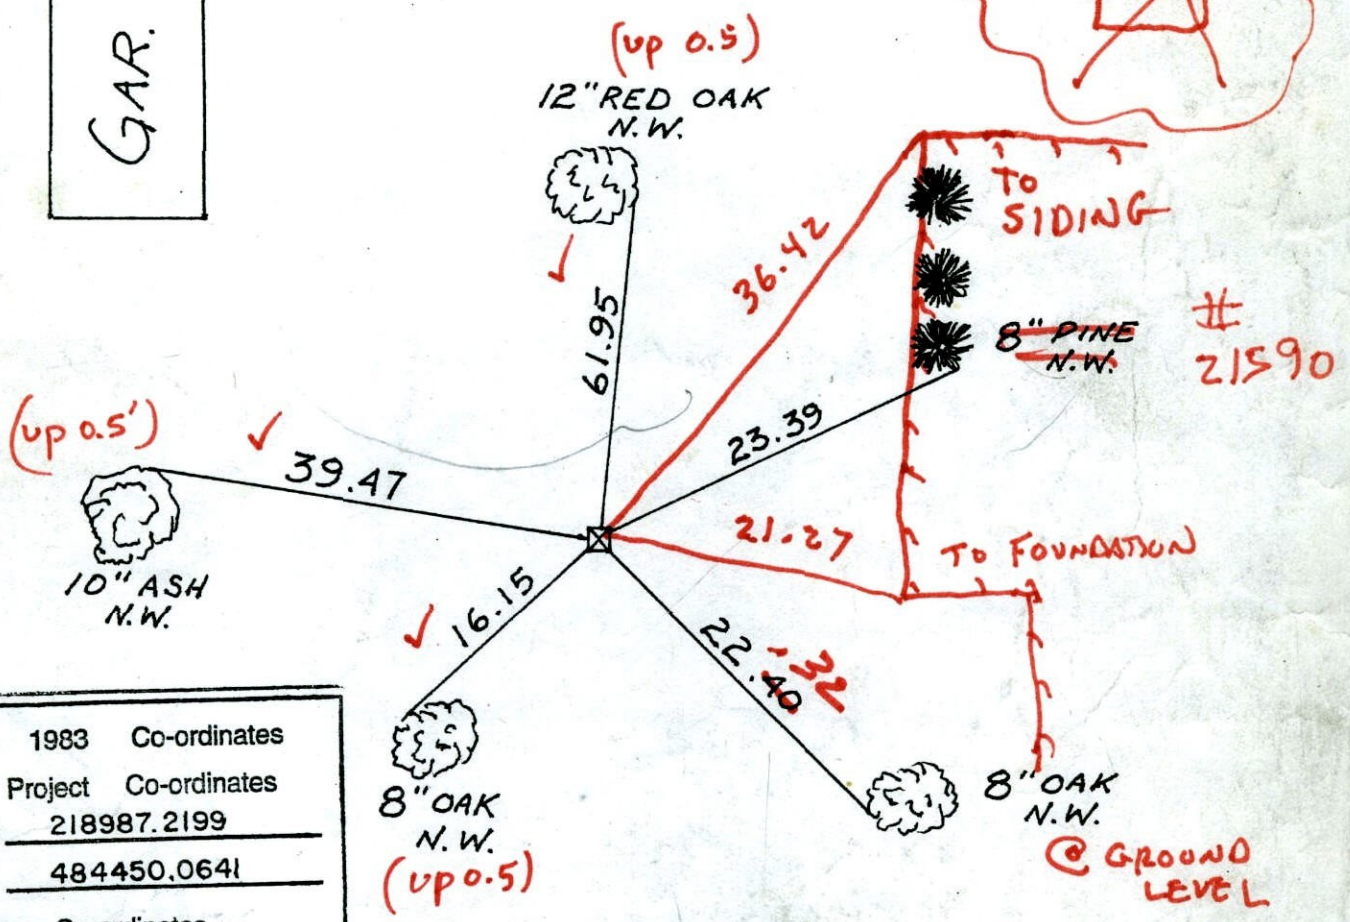 GAR.
(up 0.5)
12" RED OAK
N.W.
TO
SIDING
36.42
61.95
8" PINE
N.W.
#
21590
(up 0.5')
39.47
23.39
10" ASH
N.W.
21.27
TO FOUNDATION
16.15
22.40
.32
1983 Co-ordinates
Project Co-ordinates
218987.2199
484450.0641
Co-ordinates
8" OAK
N.W.
(up 0.5)
8" OAK
N.W.
@ GROUND
LEVEL